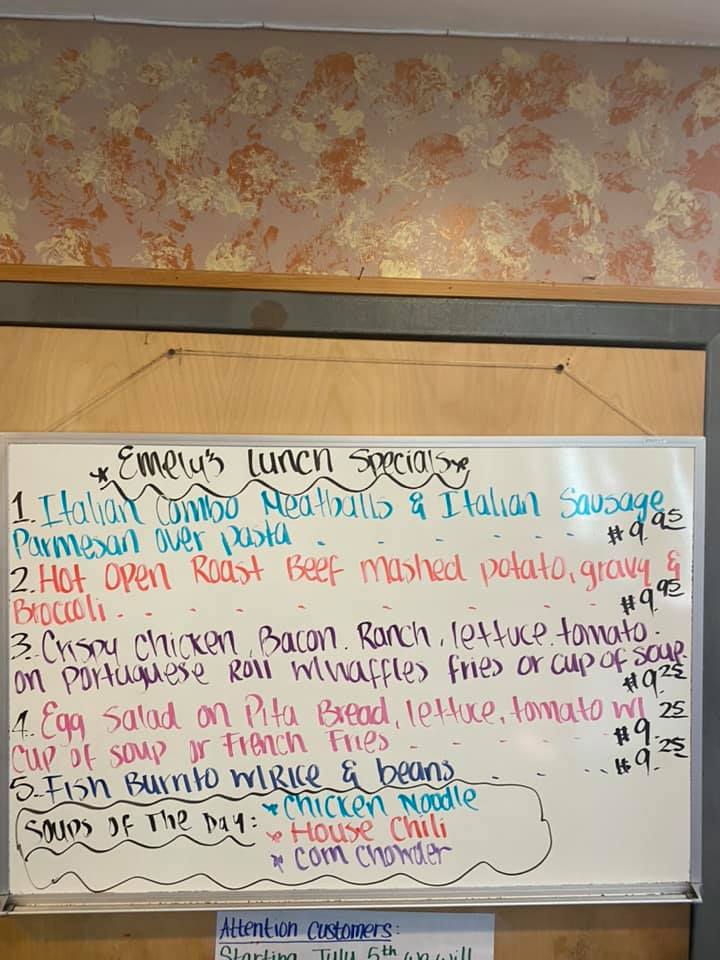 * Emely's Lunch Specials *
1. Italian Combo Meatballs & Italian Sausage
Parmesan over pasta . - - - - - - $9.95
2. Hot Open Roast Beef mashed potato, gravy &
Broccoli . - - - - - - $9.95
3. Crispy Chicken, Bacon. Ranch, lettuce. tomato.
on Portuguese Roll w/waffles fries or cup of soup
$9.25
4. Egg Salad on Pita Bread, lettuce, tomato w/
cup of soup or French Fries . - - - - $9.25
5. Fish Burrito w/Rice & beans . . . . $9.25
Soups of The Day: * Chicken Noodle
* House Chili
* Corn Chowder
Attention Customers:
Starting July 5th we will